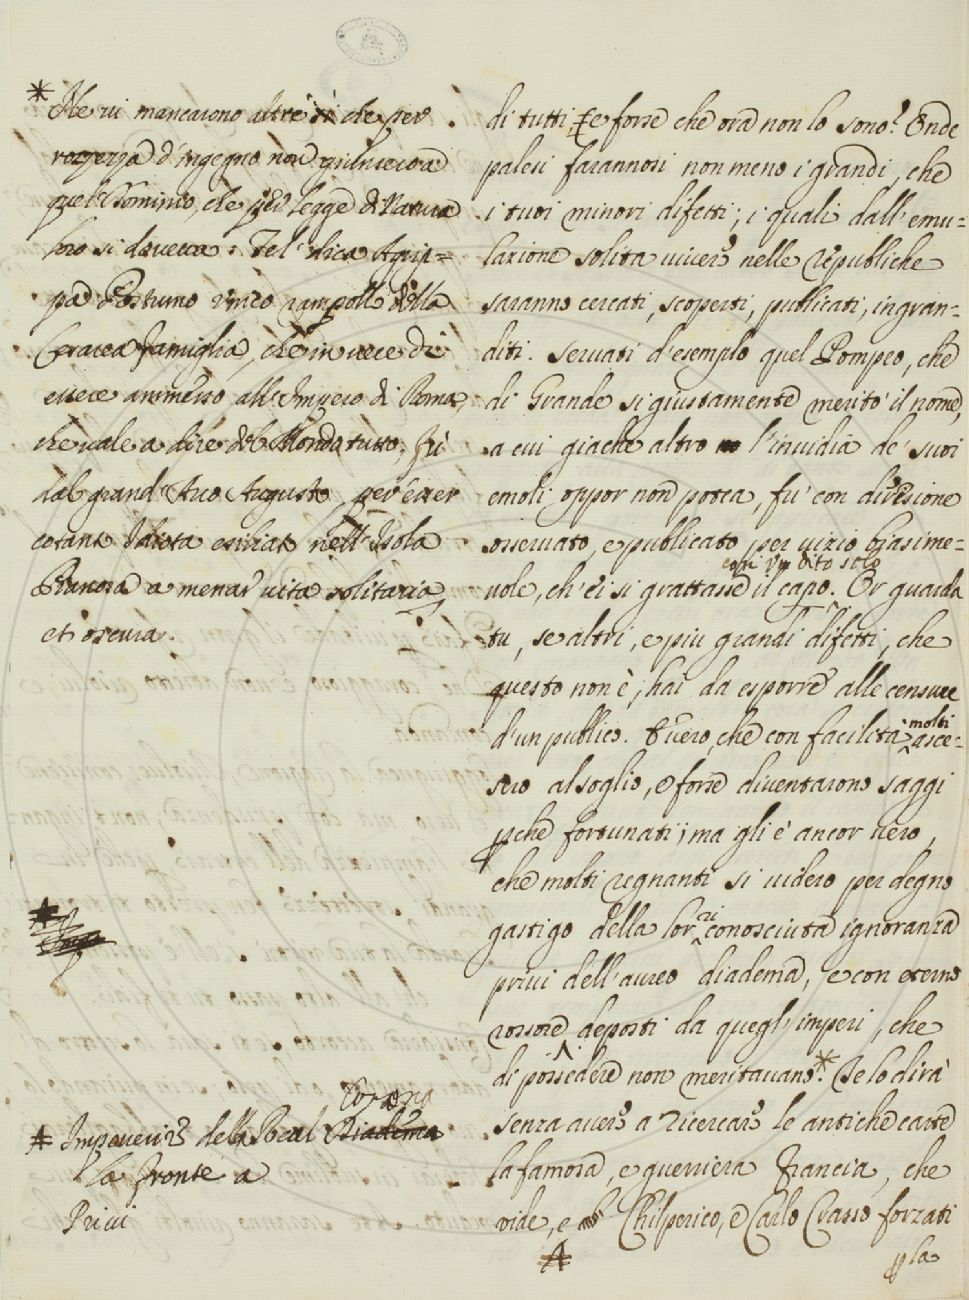 * Ne vi mancarono altresì che per
rozzezza d'ingegno non giunsero a
quel Dominio, che per legge di Natura
loro si doveva. Tel dica Agrip=
pa Postumo unico rampollo della
Cesarea famiglia, che in vece di
essere ammesso all'Impero di Roma,
che vale a dire del Mondo tutto, fù
dal grand'Avo Augusto, per esser
cotanto Idiota esiliato nell'Isola
Pianosa a menar vita solitaria,
et oscura.
*
# Impoverir della Real Diadema
Corona
la fronte a
Privi
di tutti, e forse che ora non lo sono? Onde
palesi farannosi non meno i grandi, che
i tuoi minori difetti; i quali dall'emu=
lazione solita vivere nelle republiche
saranno cercati, scoperti, publicati, ingran=
diti. Servati d'esempio quel Pompeo, che
di Grande sì giustamente meritò il nome,
a cui giache altro l'invidia de' suoi
emoli oppor non potea, fu con derisione
osservato, e publicato per vizio biasime=
con un dito solo
vole, ch'ei si grattasse il capo. Or guarda
tu, se altri, e piu grandi difetti, che
questo non è, hai da esporre alle censure
d'un publico. È vero, che con facilità molti asce=
sero al soglio, e forse diventarono saggi
pche fortunati; ma gli è ancor vero,
che molti regnanti si videro per degno
gastigo della lor riconosciuta ignoranza
privi dell'aureo diadema, e con eterno
rossore deposti da quegl'imperi, che
di possedere non meritavano.* Te lo dirà
senza avere a ricercare le antiche carte
la famosa, e guerriera Francia, che
vide, e Chilperico, e Carlo Crasso forzati
#
p la